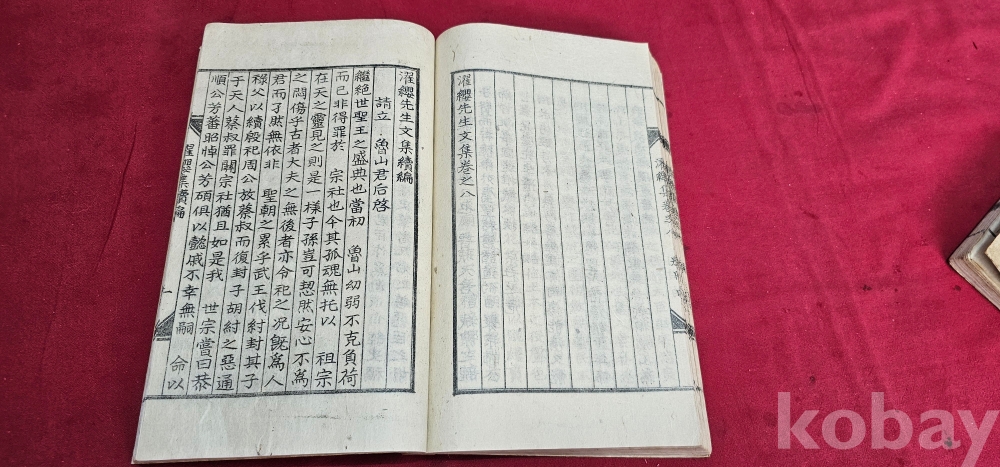 濯纓先生文集卷之八
濯纓先生文集續編
請立 魯山君后啓
繼絶世聖王之盛典也當初 魯山幼弱不克負荷
而已非得罪於 宗社也今其孤魂無托以 祖宗
在天之靈見之則是一樣子孫豈可恝然安心不爲
之悶傷乎古者大夫之無後者亦令祀之况旣爲人
君而孑然無依非 聖朝之累乎武王伐紂封其子
祿父以續殷祀周公放蔡叔而復封子胡紂之惡通
于天人蔡叔罪關宗社猶且如是我 世宗嘗曰恭
順公芳蕃昭悼公芳碩俱以懿戚不幸無嗣 命以
濯纓集續編
一
kobay